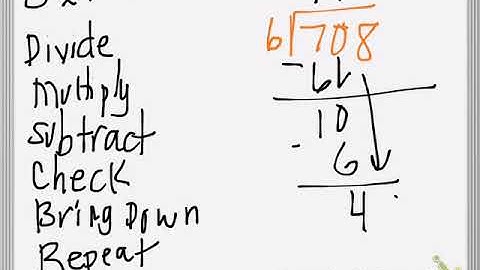 6 708
Divide
- 6
Multiply
10
Subtract
- 6
Check
4
Bring Down
Repeat